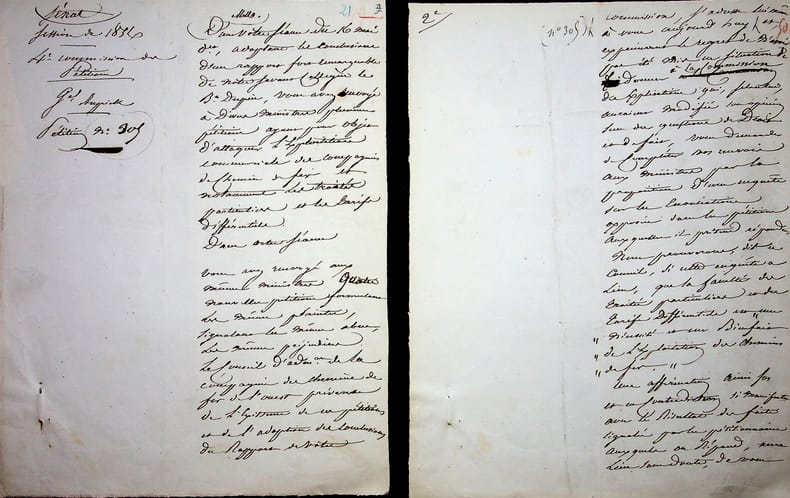 Sénat
Session de 1856
4e commission des
Pétitions
Gal
Pétition no 305
21 2
Mrs.
Dans votre séance du 16 mai
adoptant les conclusions
d'un rapport fort remarquable
de notre savant collègue le
Bn Dupin, vous avez renvoyé
à deux ministres plusieurs
pétitions ayant pour objet
d'attaquer l'exploitation
commerciale des compagnies
de chemin de fer et
notamment les traités
particuliers et les tarifs
différentiels
Dans cette séance
vous avez renvoyé aux
mêmes ministres quatre
nouvelles pétitions formulant
les mêmes plaintes,
signalant les mêmes abus,
les mêmes préjudices
Le Conseil d'adon de la
compagnie des chemins de
fer de l'ouest prévenu
de l'existence de ces pétitions
et de l'adoption des conclusions
du Rapport de votre
2e
(no 305)
commission, s'adresse lui même
à vous aujourd'huy et
exprimant le regret de n'avoir
pas été mis en situation de
donner à la Commission
des explications qui,
auraient modifié son opinion
sur des questions de droit
et de fait, vous demande
de compléter vos renvois
aux ministres par la
proposition d'une enquête
sur les énonciations
opposées dans les pétitions
auxquelles il prétend répondre.
Nous prouverons, dit ce
Conseil, si cette enquête a
lieu, que la faculté des
traités particuliers et des
tarifs différentiels est "une
" nécessité et un Bienfait
" de l'exploitation des chemins
" de fer. "
Une affirmation aussi
et en contradiction si manifeste
avec le Résultat des faits
signalés par les pétitionnaires
auxquels on Répond, aura
lieu sans doute, de vous